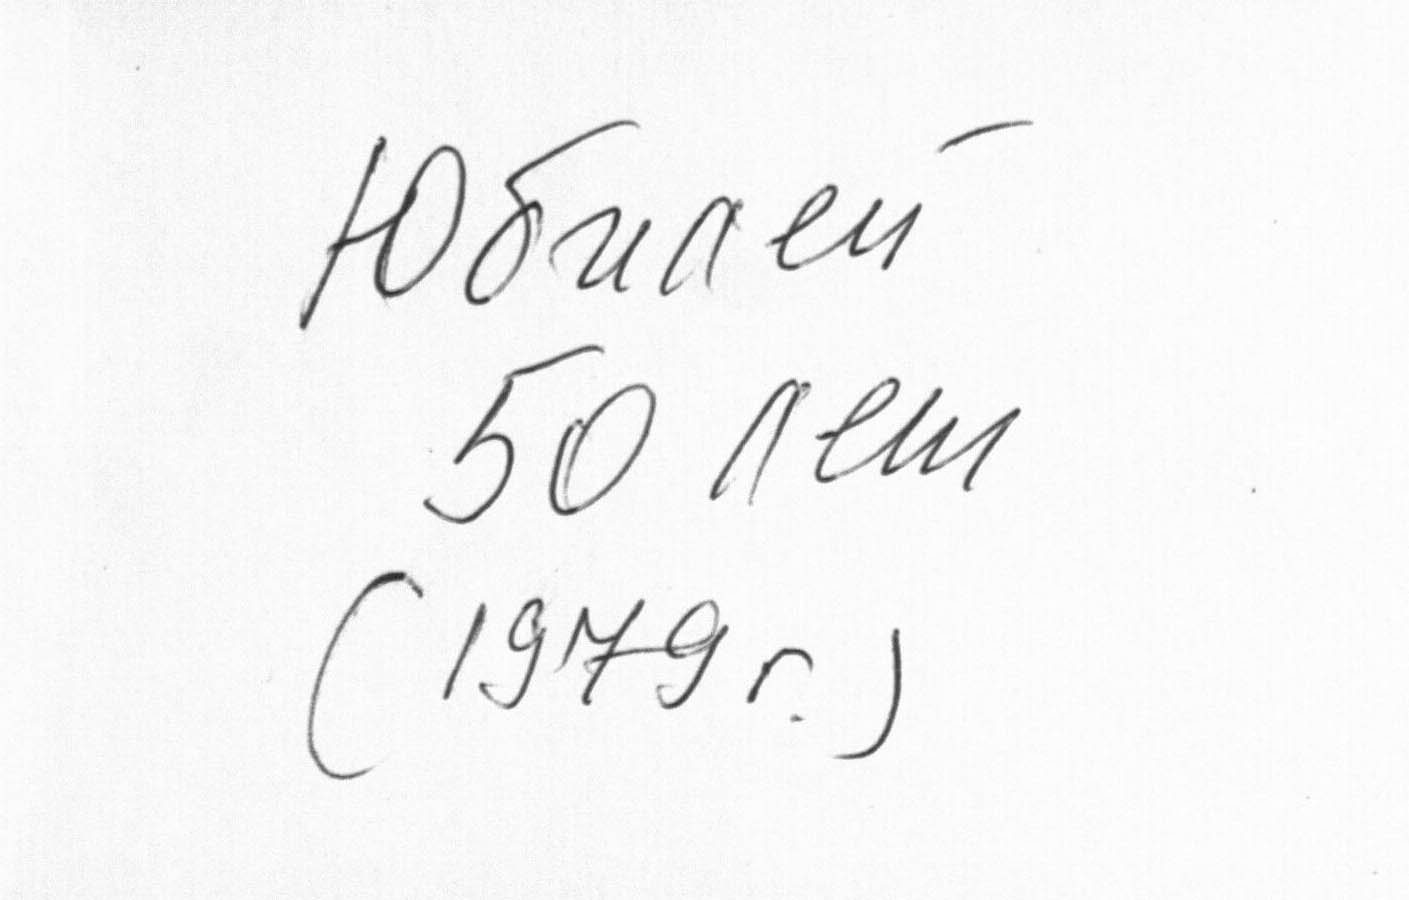 Юбилей
50 лет
(1979 г.)